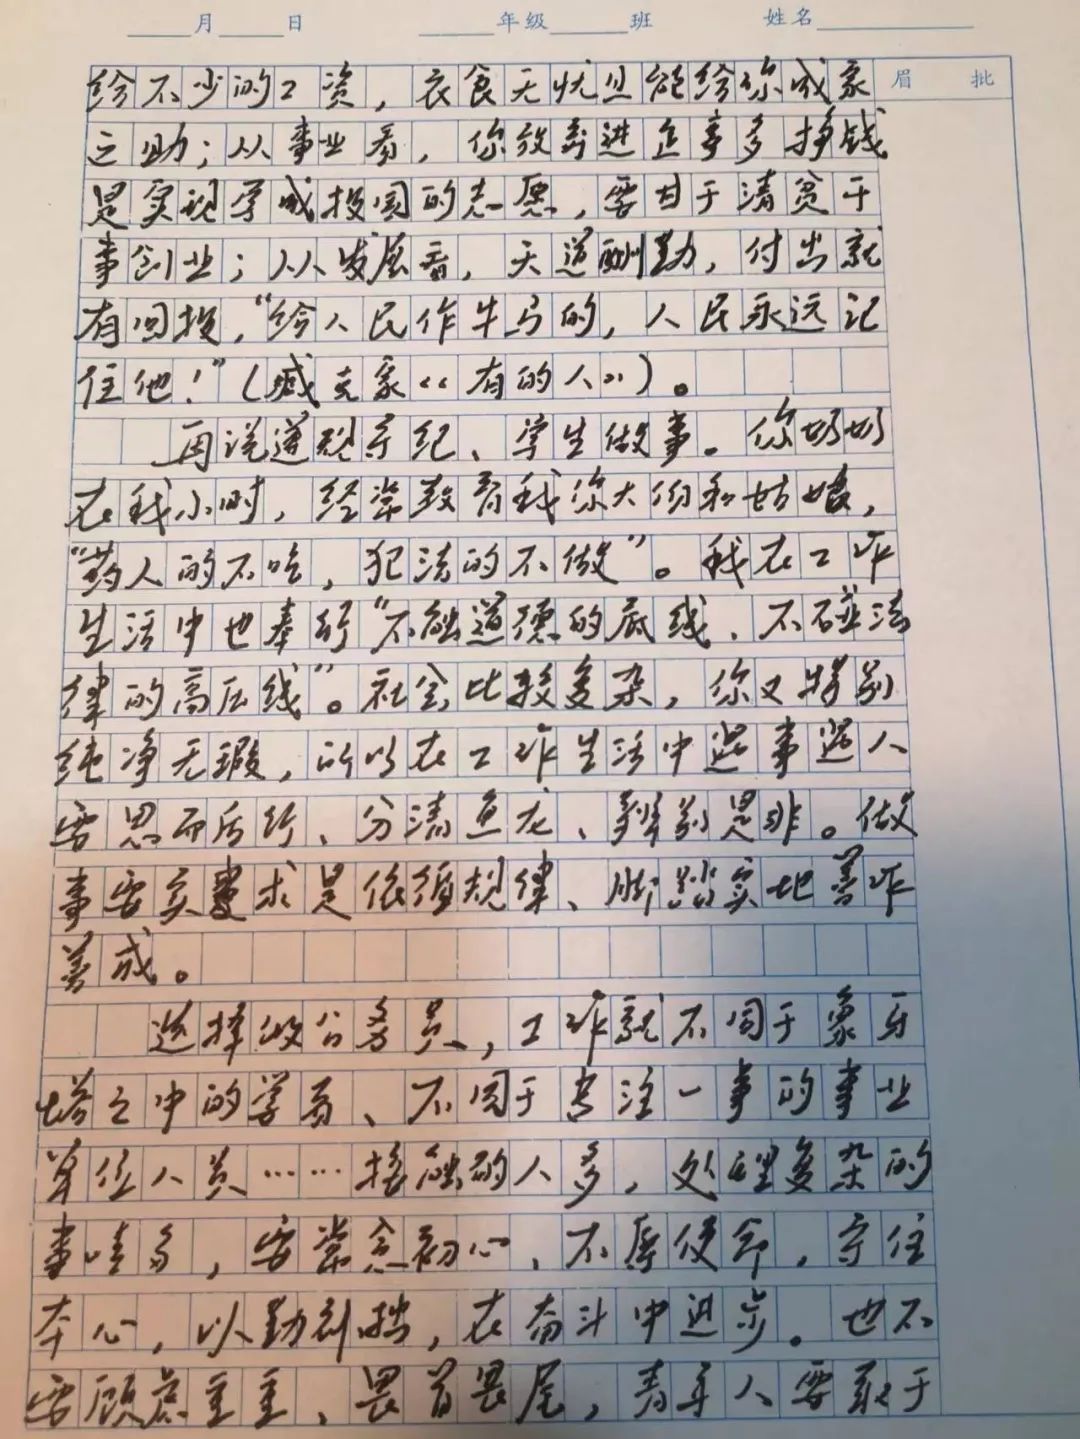 月 日 年级 班 姓名
眉 批
给不少的工资，衣食无忧且能给你成家
之助；从事业看，你放弃进企事多挣钱
是实现学成报国的志愿，要甘于清贫干
事创业；从发展看，天道酬勤，付出就
有回报，“给人民作牛马的，人民永远记
住他！”（臧克家《有的人》）。
再说遵规守纪、学生做事。你奶奶
在我小时，经常教育我你大伯和姑娘，
“药人的不吃，犯法的不做”。我在工作
生活中也奉行“不触道德的底线、不碰法
律的高压线”。社会比较复杂，你又特别
纯净无瑕，所以在工作生活中遇事遇人
要思而后行、分清鱼龙、辨别是非。做
事要实事求是依循规律、脚踏实地善作
善成。
选择做公务员，工作就不同于象牙
塔之中的学员、不同于专注一事的事业
单位人员……接触的人多，处理复杂的
事多，要常念初心、不辱使命，守住
本心，以勤补拙，在奋斗中进步。也不
要顾虑重重、畏首畏尾，青年人要敢于